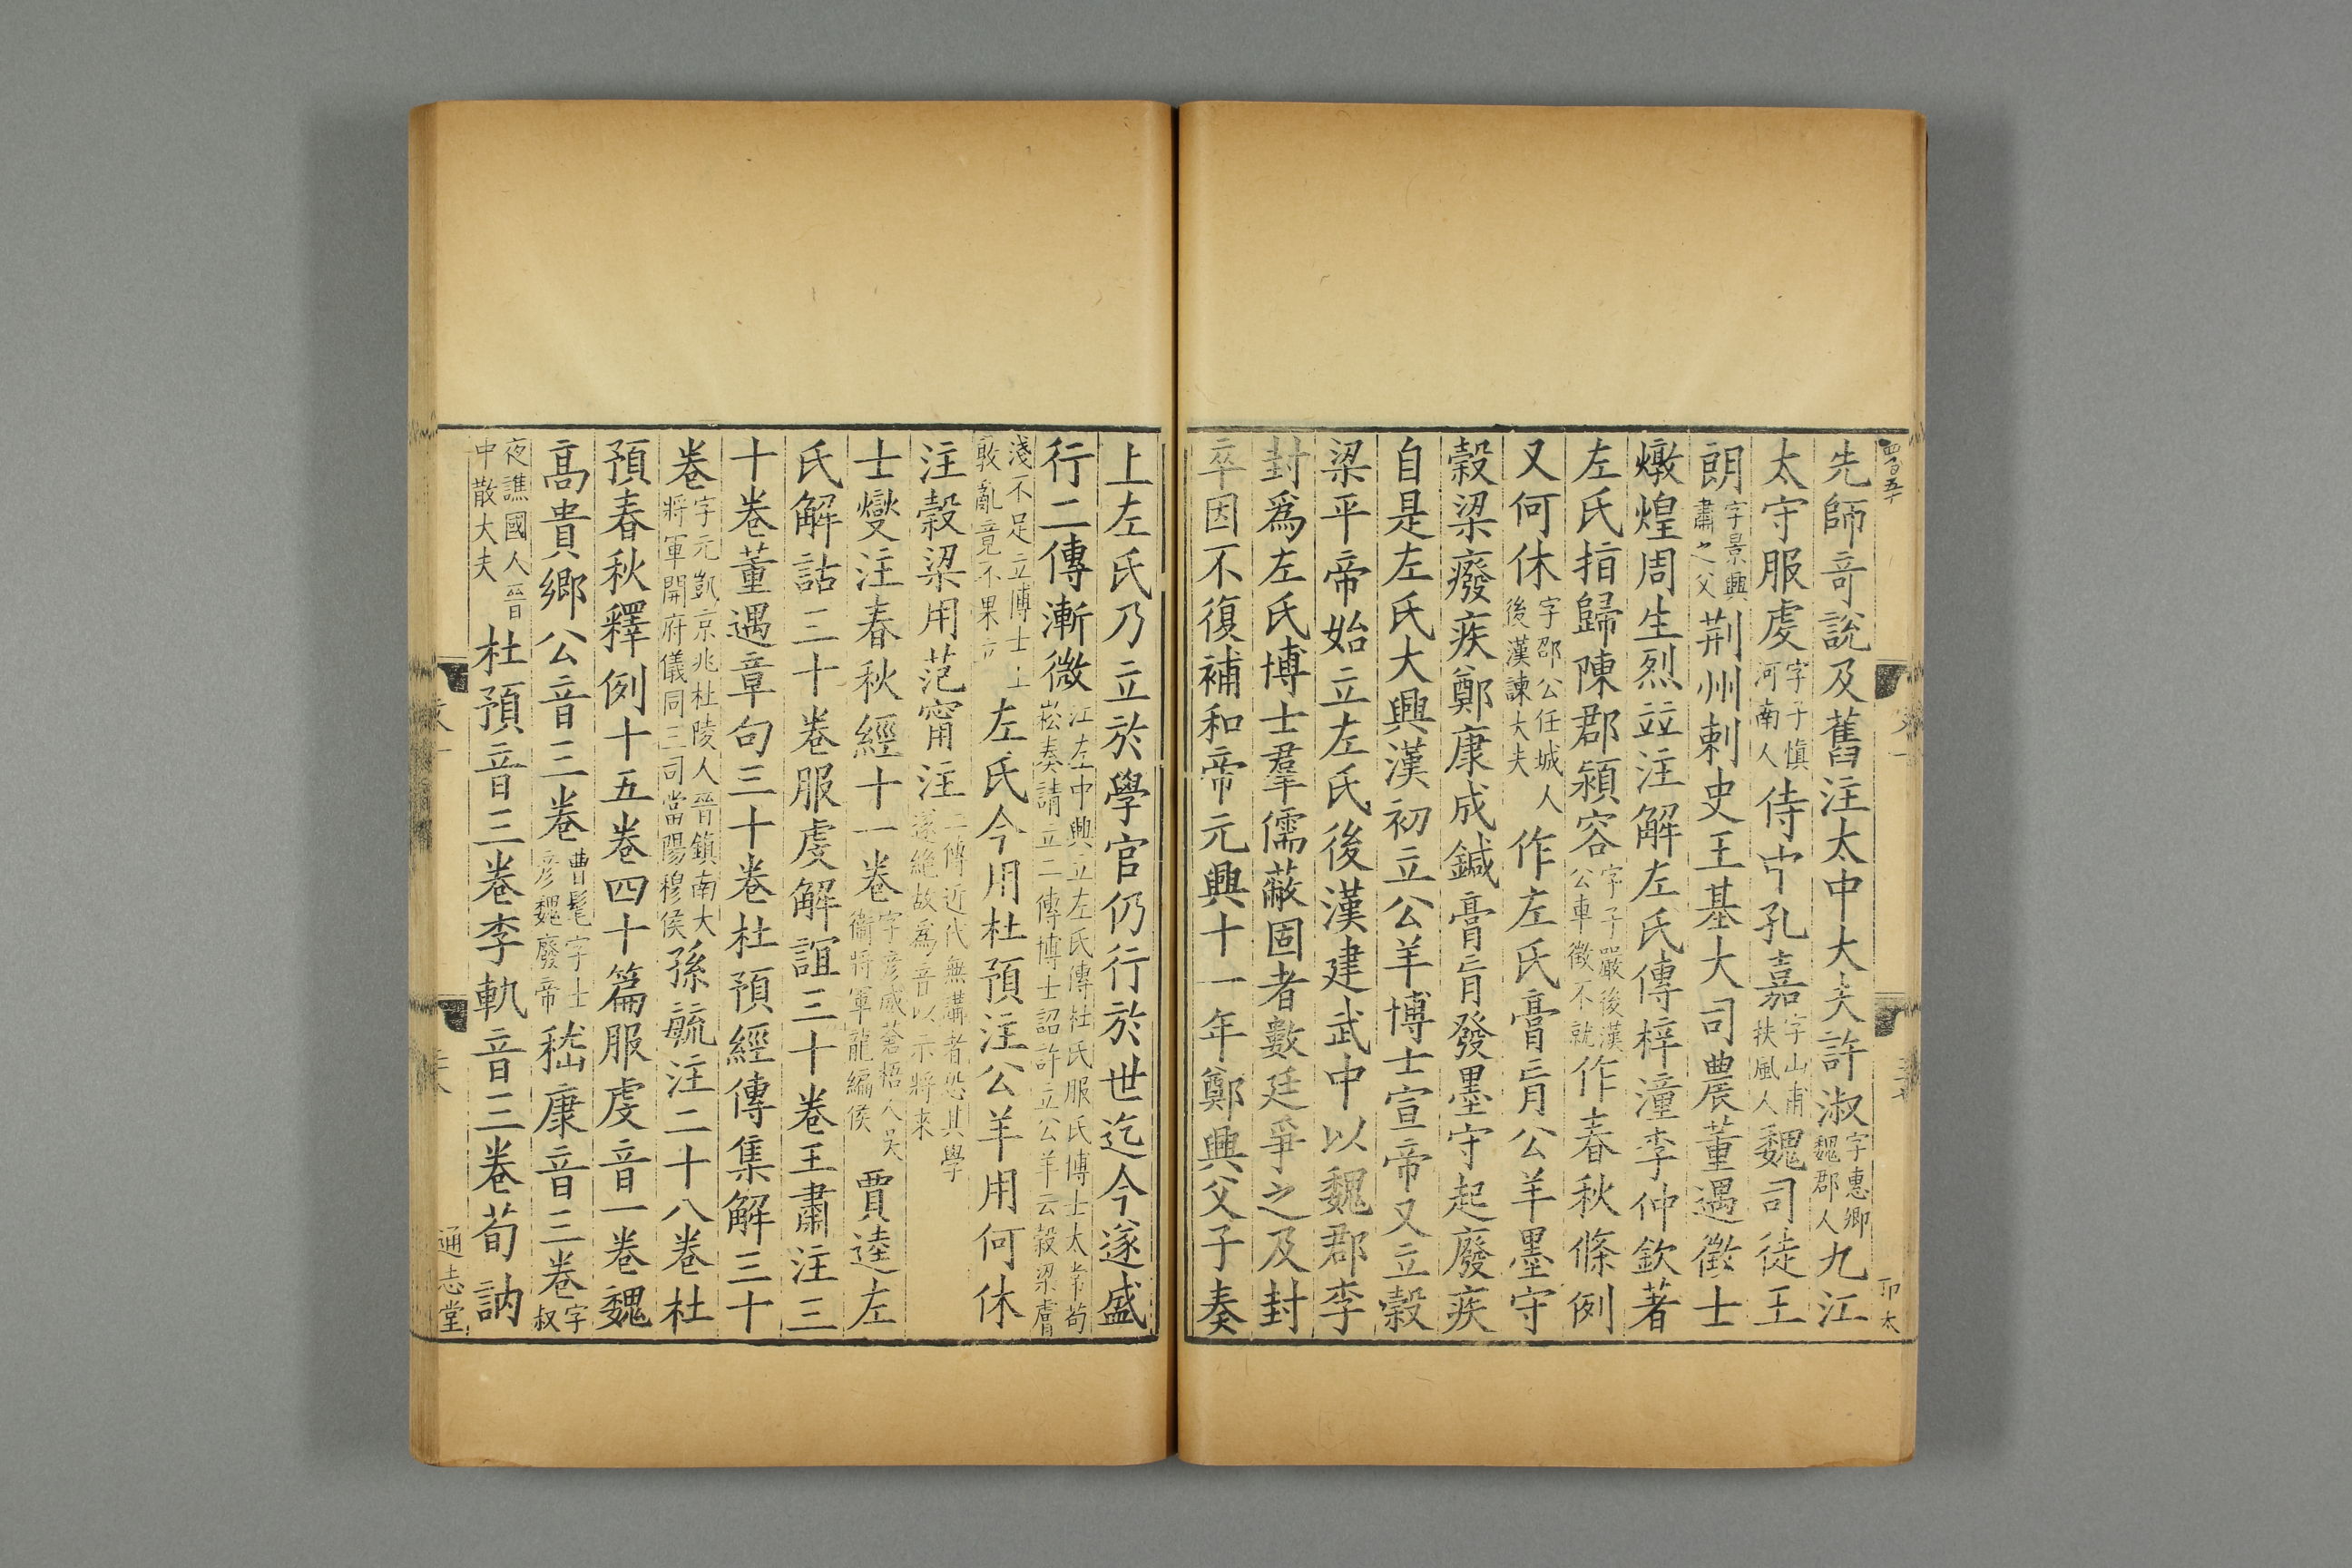 先師奇說及舊注太中大夫許淑字惠卿魏郡人九江
太守服虔字子慎河南人侍中孔嘉字山甫扶風人魏司徒王
朗字景興肅之父荆州刺史王基大司農董遇徵士
燉煌周生烈竝注解左氏傳梓潼李仲欽著
左氏指歸陳郡潁容字子嚴後漢公車徵不就作春秋條例
又何休字邵公任城人後漢諫大夫作左氏膏肓公羊墨守
穀梁癈疾鄭康成鍼膏肓發墨守起廢疾
自是左氏大興漢初立公羊博士宣帝又立穀
梁平帝始立左氏後漢建武中以魏郡李
封爲左氏博士羣儒蔽固者數廷爭之及封
卒因不復補和帝元興十一年鄭興父子奏
上左氏乃立於學官仍行於世迄今遂盛
行二傳漸微江左中興立左氏傳杜氏服氏博士太常荀崧奏請立二傳博士詔許立公羊云穀梁膚
淺不足立博士王敦亂竟不果立左氏今用杜預注公羊用何休
注穀梁用范甯注二傳近代無講者恐其學遂絶故爲音以示將来
士燮注春秋經十一卷字彦威蒼梧人吴衞將軍龍編侯賈逵左
氏解詁三十卷服虔解誼三十卷王肅注三
十卷董遇章句三十卷杜預經傳集解三十
卷字元凱京兆杜陵人晉鎮南大將軍開府儀同三司當陽穆侯孫毓注二十八卷杜
預春秋釋例十五卷四十篇服虔音一卷魏
高貴鄉公音三卷曹髦字士彦魏廢帝嵇康音三卷字叔
夜譙國人晉中散大夫杜預音三卷李軌音三卷荀訥
通志堂